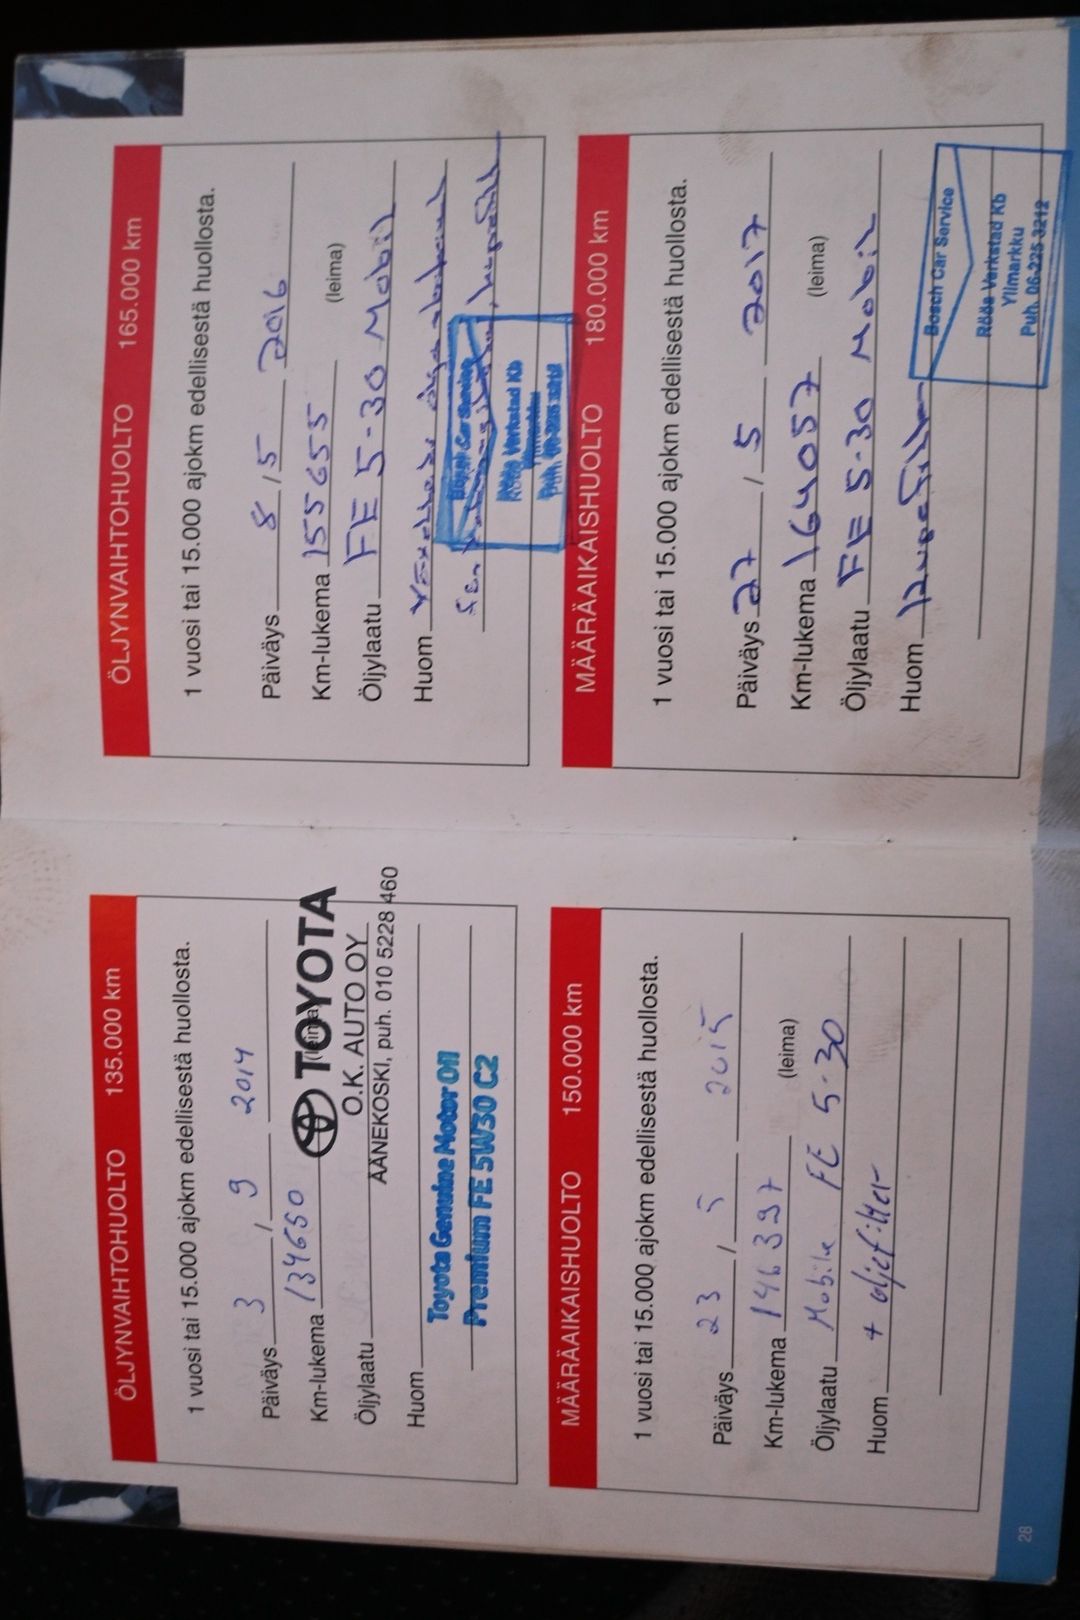 ÖLJYNVAIHTOHUOLTO 135.000 km
1 vuosi tai 15.000 ajokm edellisestä huollosta.
Päiväys 3 / 9 2014
Km-lukema 134650 (leima)
TOYOTA
O.K. AUTO OY
Öljylaatu
ÄÄNEKOSKI, puh. 010 5228 460
Huom
Toyota Genuine Motor Oil
Premium FE 5W30 C2
MÄÄRÄAIKAISHUOLTO 150.000 km
1 vuosi tai 15.000 ajokm edellisestä huollosta.
Päiväys 23 / 5 2015
Km-lukema 146397 (leima)
Öljylaatu Mobile FE 5-30
Huom + oljefilter
28
ÖLJYNVAIHTOHUOLTO 165.000 km
1 vuosi tai 15.000 ajokm edellisestä huollosta.
Päiväys 8 / 5 2016
Km-lukema 155655 (leima)
Öljylaatu FE 5-30 Mobil
Huom
Bosch Car Service
Röös Verkstad Kb
Ylimarkku
Puh. 06-225 3212
MÄÄRÄAIKAISHUOLTO 180.000 km
1 vuosi tai 15.000 ajokm edellisestä huollosta.
Päiväys 27 / 5 2017
Km-lukema 164057 (leima)
Öljylaatu FE 5-30 Mobil
Huom
Bosch Car Service
Röös Verkstad Kb
Ylimarkku
Puh. 06-225 3212